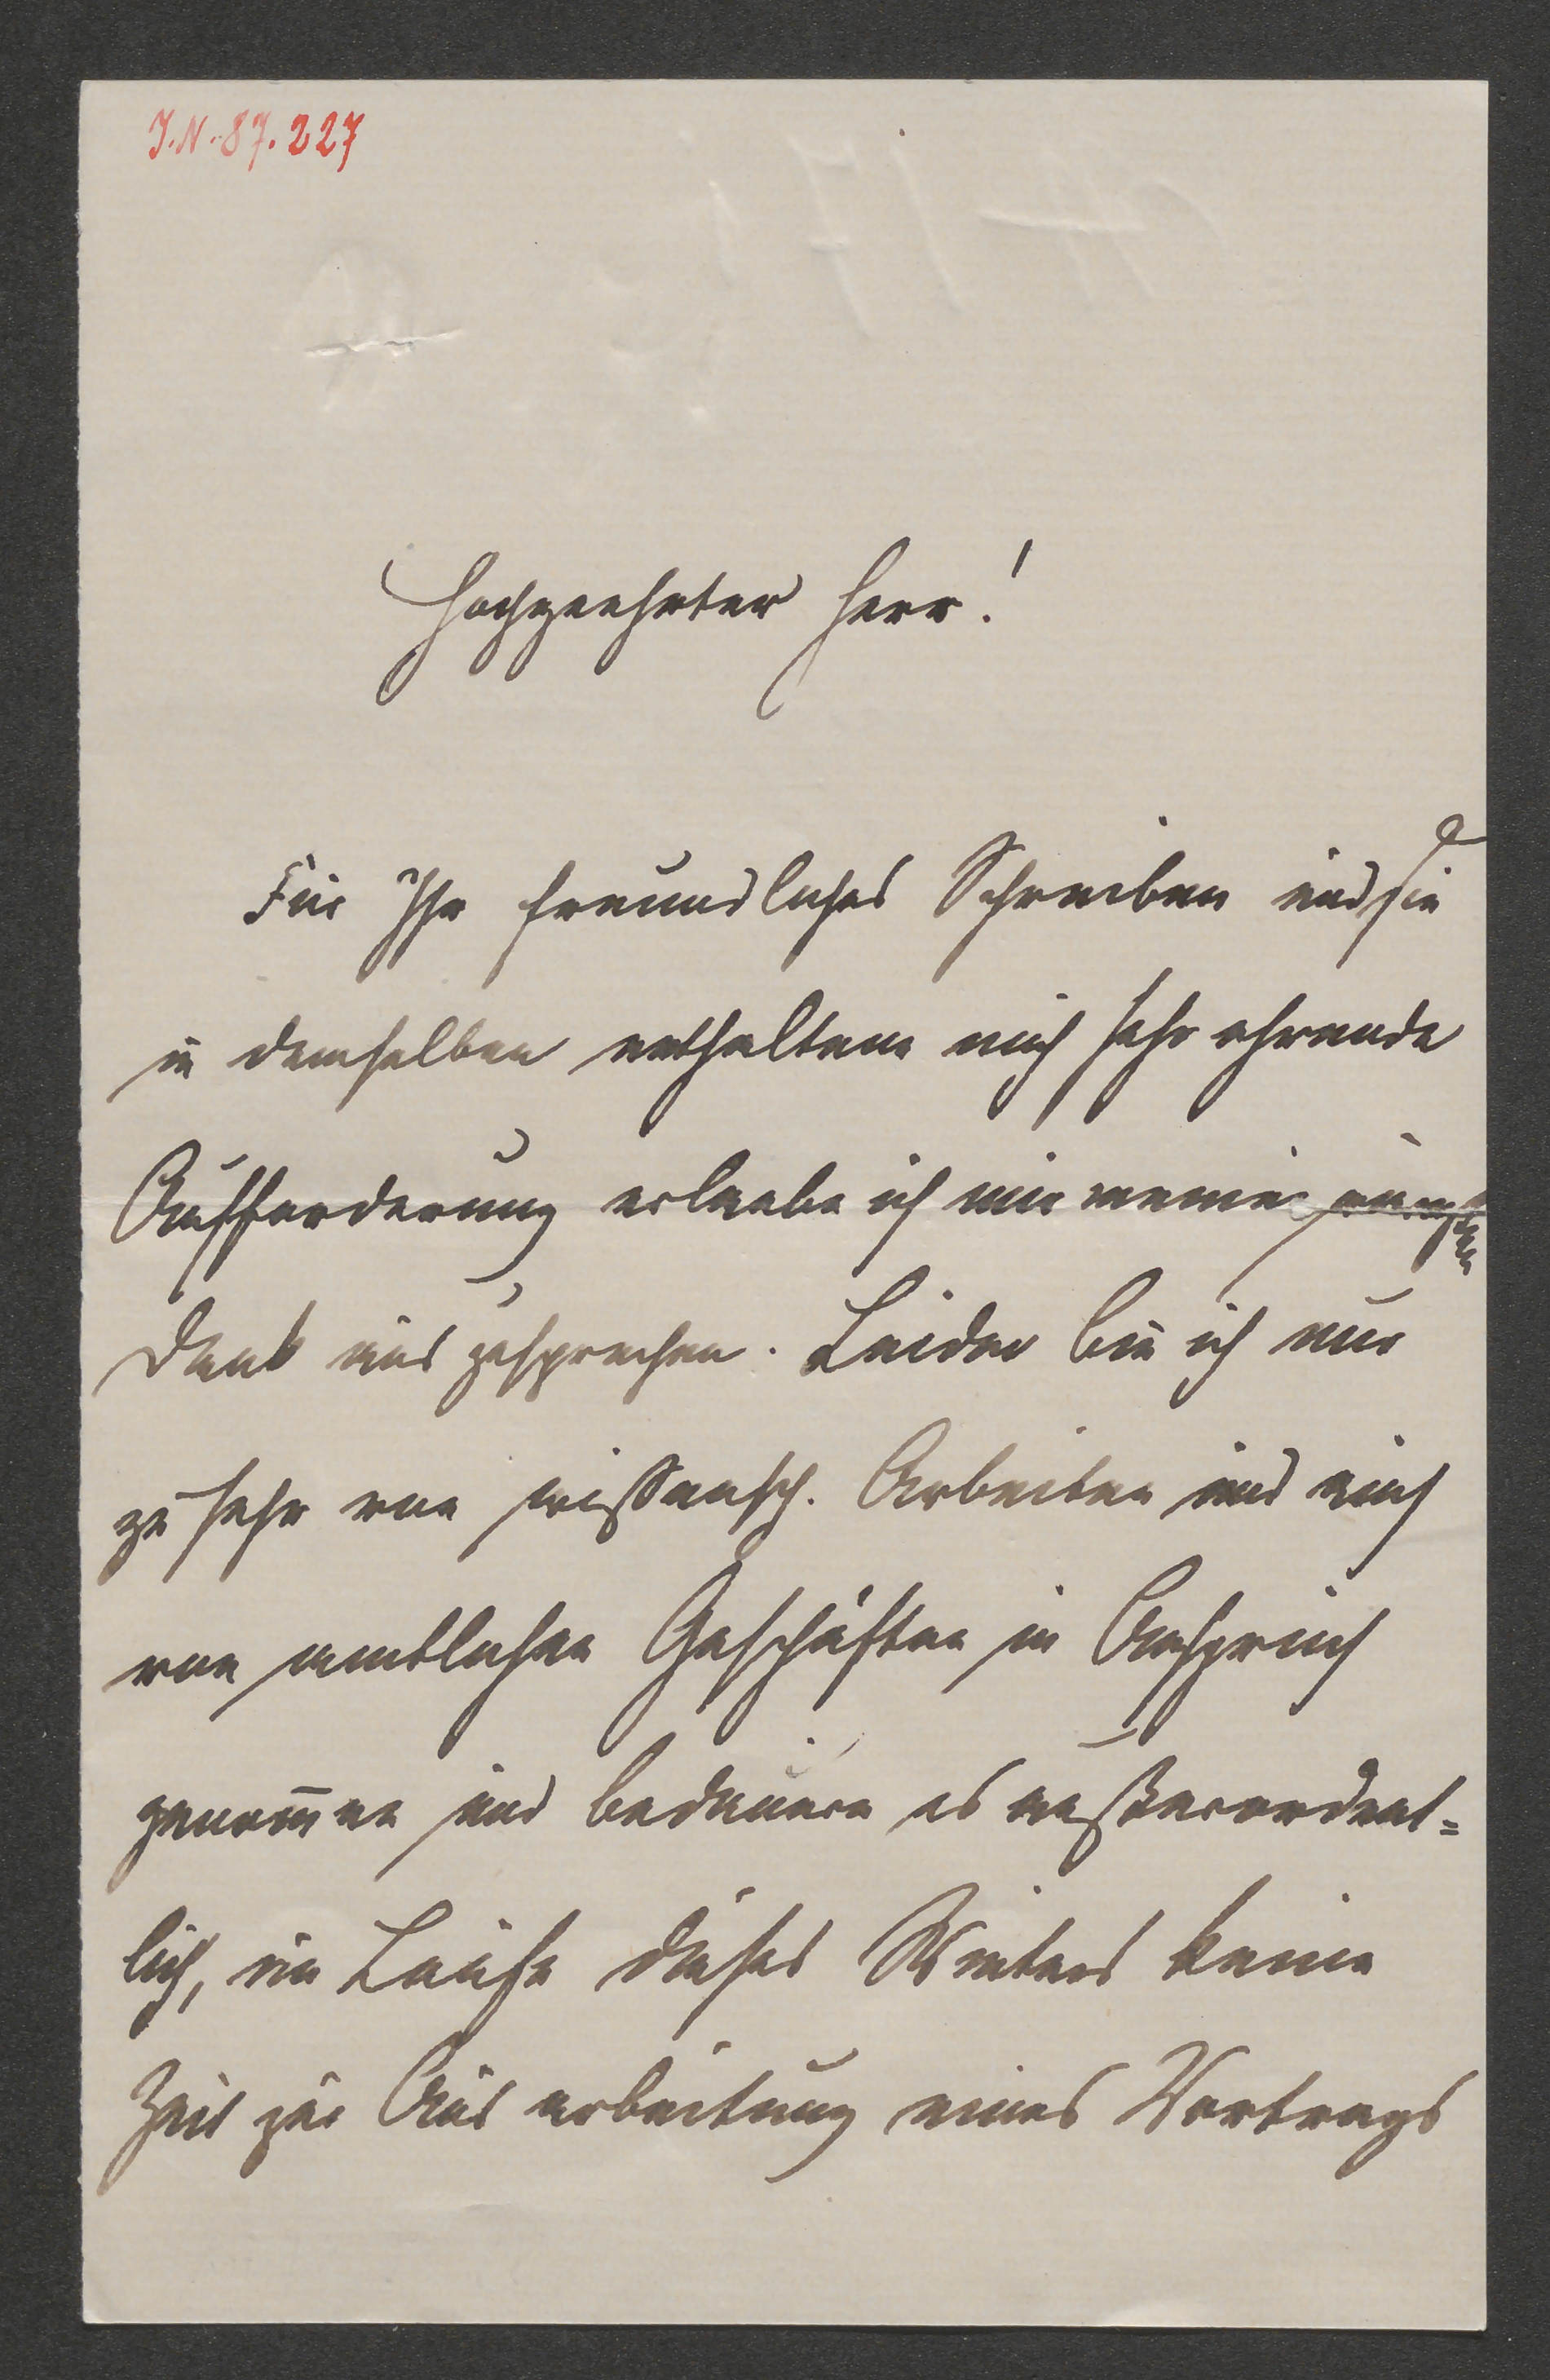 J.N. 87.227
Hochgeehrter Herr!
Für Ihr freundliches Schreiben und die
in demselben enthaltene mich sehr ehrende
Aufforderung erlaube ich mir meinen
Dank auszusprechen. Leider bin ich nur
zu sehr von wissensch. Arbeiten und auch
von amtlichen Geschäften in Anspruch
genom̅en und bedauere es außerordent=
lich, im Laufe dieses Winters keine
Zeit zur Ausarbeitung eines Vortrags